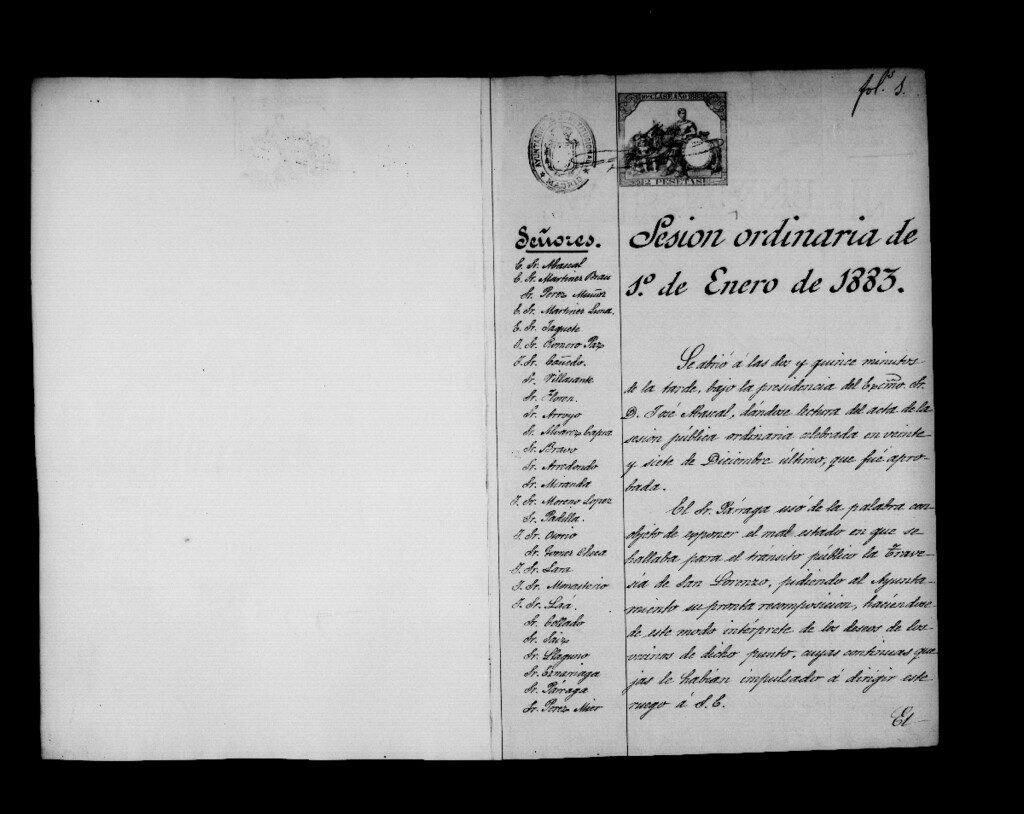 fol.º 1.
AYUNTAMIENTO CONSTITUCIONAL
MADRID
AÑO 1883
2 PESETAS
Señores.
E. Sr. Abascal
E. Sr. Martinez Brau
Sr. Perez Muñoz
E. Sr. Martinez Luna.
E. Sr. Jaquete
O. Sr. Romero Paz
I. Sr. Cañedo.
Sr. Villasante
Sr. Floren.
Sr. Arroyo
Sr. Alvarez Capra
Sr. Bravo
Sr. Arredondo
Sr. Miranda
I. Sr. Moreno Lopez
Sr. Padilla.
I. Sr. Osorio
Sr. Gomez
I. Sr. Lara
I. Sr. Monasterio
I. Sr. Laá.
Sr. Collado
Sr. Saiz
Sr. Llaguno
Sr. Eznarriaga
Sr. Párraga
Sr. Perez Mier
Sesion ordinaria de
1.º de Enero de 1883.
Se abrió á las dos y quince minutos
de la tarde, bajo la presidencia del Excmo. Sr.
D. José Abascal, dándose lectura del acta de la
sesion pública ordinaria celebrada en veinte
y siete de Diciembre último, que fué apro-
bada.
El Sr. Párraga usó de la palabra con
objeto de exponer el mal estado en que se
hallaba para el tránsito público la Trave-
sía de San Lorenzo, pidiendo al Ayunta-
miento su pronta recomposicion, haciéndose
de este modo intérprete de los deseos de los
vecinos de dicho punto, cuyas continuas que-
jas le habian impulsado á dirigir este
ruego á S.E.
El